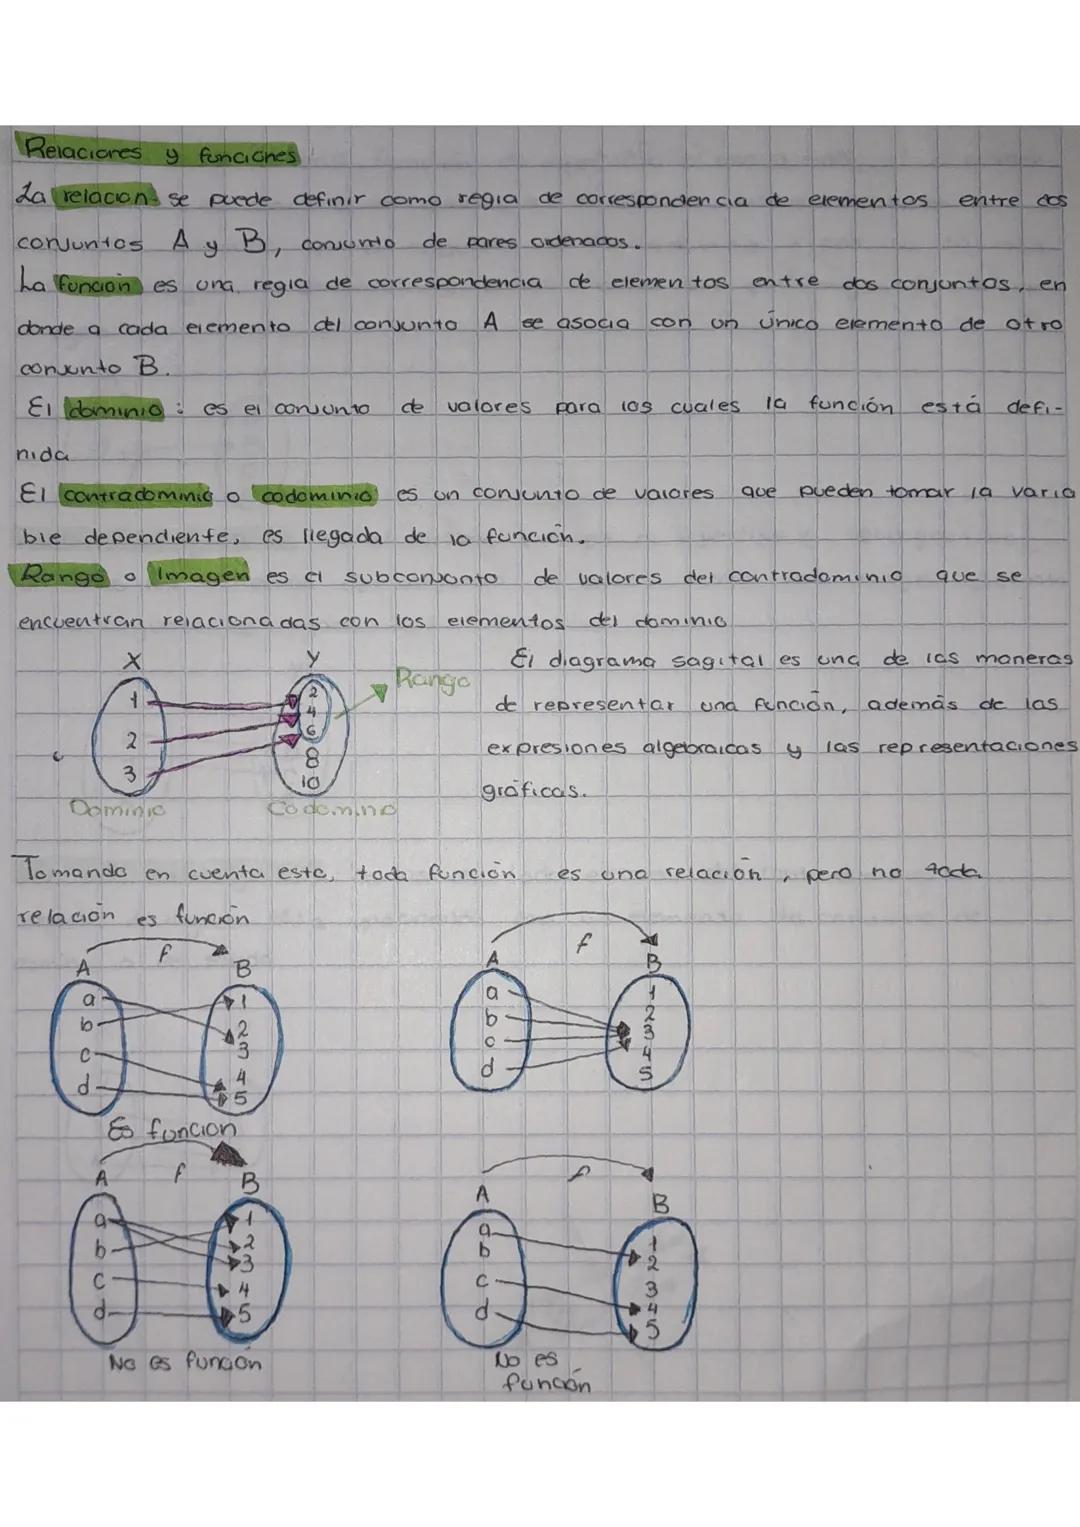 Relaciones y funciones
La relacion se puede definir como regla de correspondencia de elementos entre dos
conjuntos A y B, conjunto de pares ordenados.
La función es una regla de correspondencia de elementos entre dos conjuntos, en
donde a cada elemento del conjunto A se asocia con un único elemento de otro
conjunto B.
El dominio: es el conjunto de valores para los cuales la función está defi-
nida
El contradominio o codominio es un conjunto de valores que pueden tomar la varia
ble dependiente, es llegada de la función.
Rango o Imagen es el subconjunto de valores del contradominio que se
encuentran relacionadas con los elementos del dominio
X Y
Rango
1 2
4
2 6
8
3 10
Dominio Codominio
El diagrama sagital es una de las maneras
de representar una función, además de las
expresiones algebraicas y las representaciones
gráficas.
Tomando en cuenta esto, toda función es una relación, pero no toda
relación es función
f
A B
a 1
b 2
c 3
d 4
5
Es funcion
f
A B
a 1
b 2
c 3
d 4
5
f
A B
a 1
b 2
c 3
d 4
5
No es función
f
A B
a 1
b 2
c 3
d 4
5
No es
función